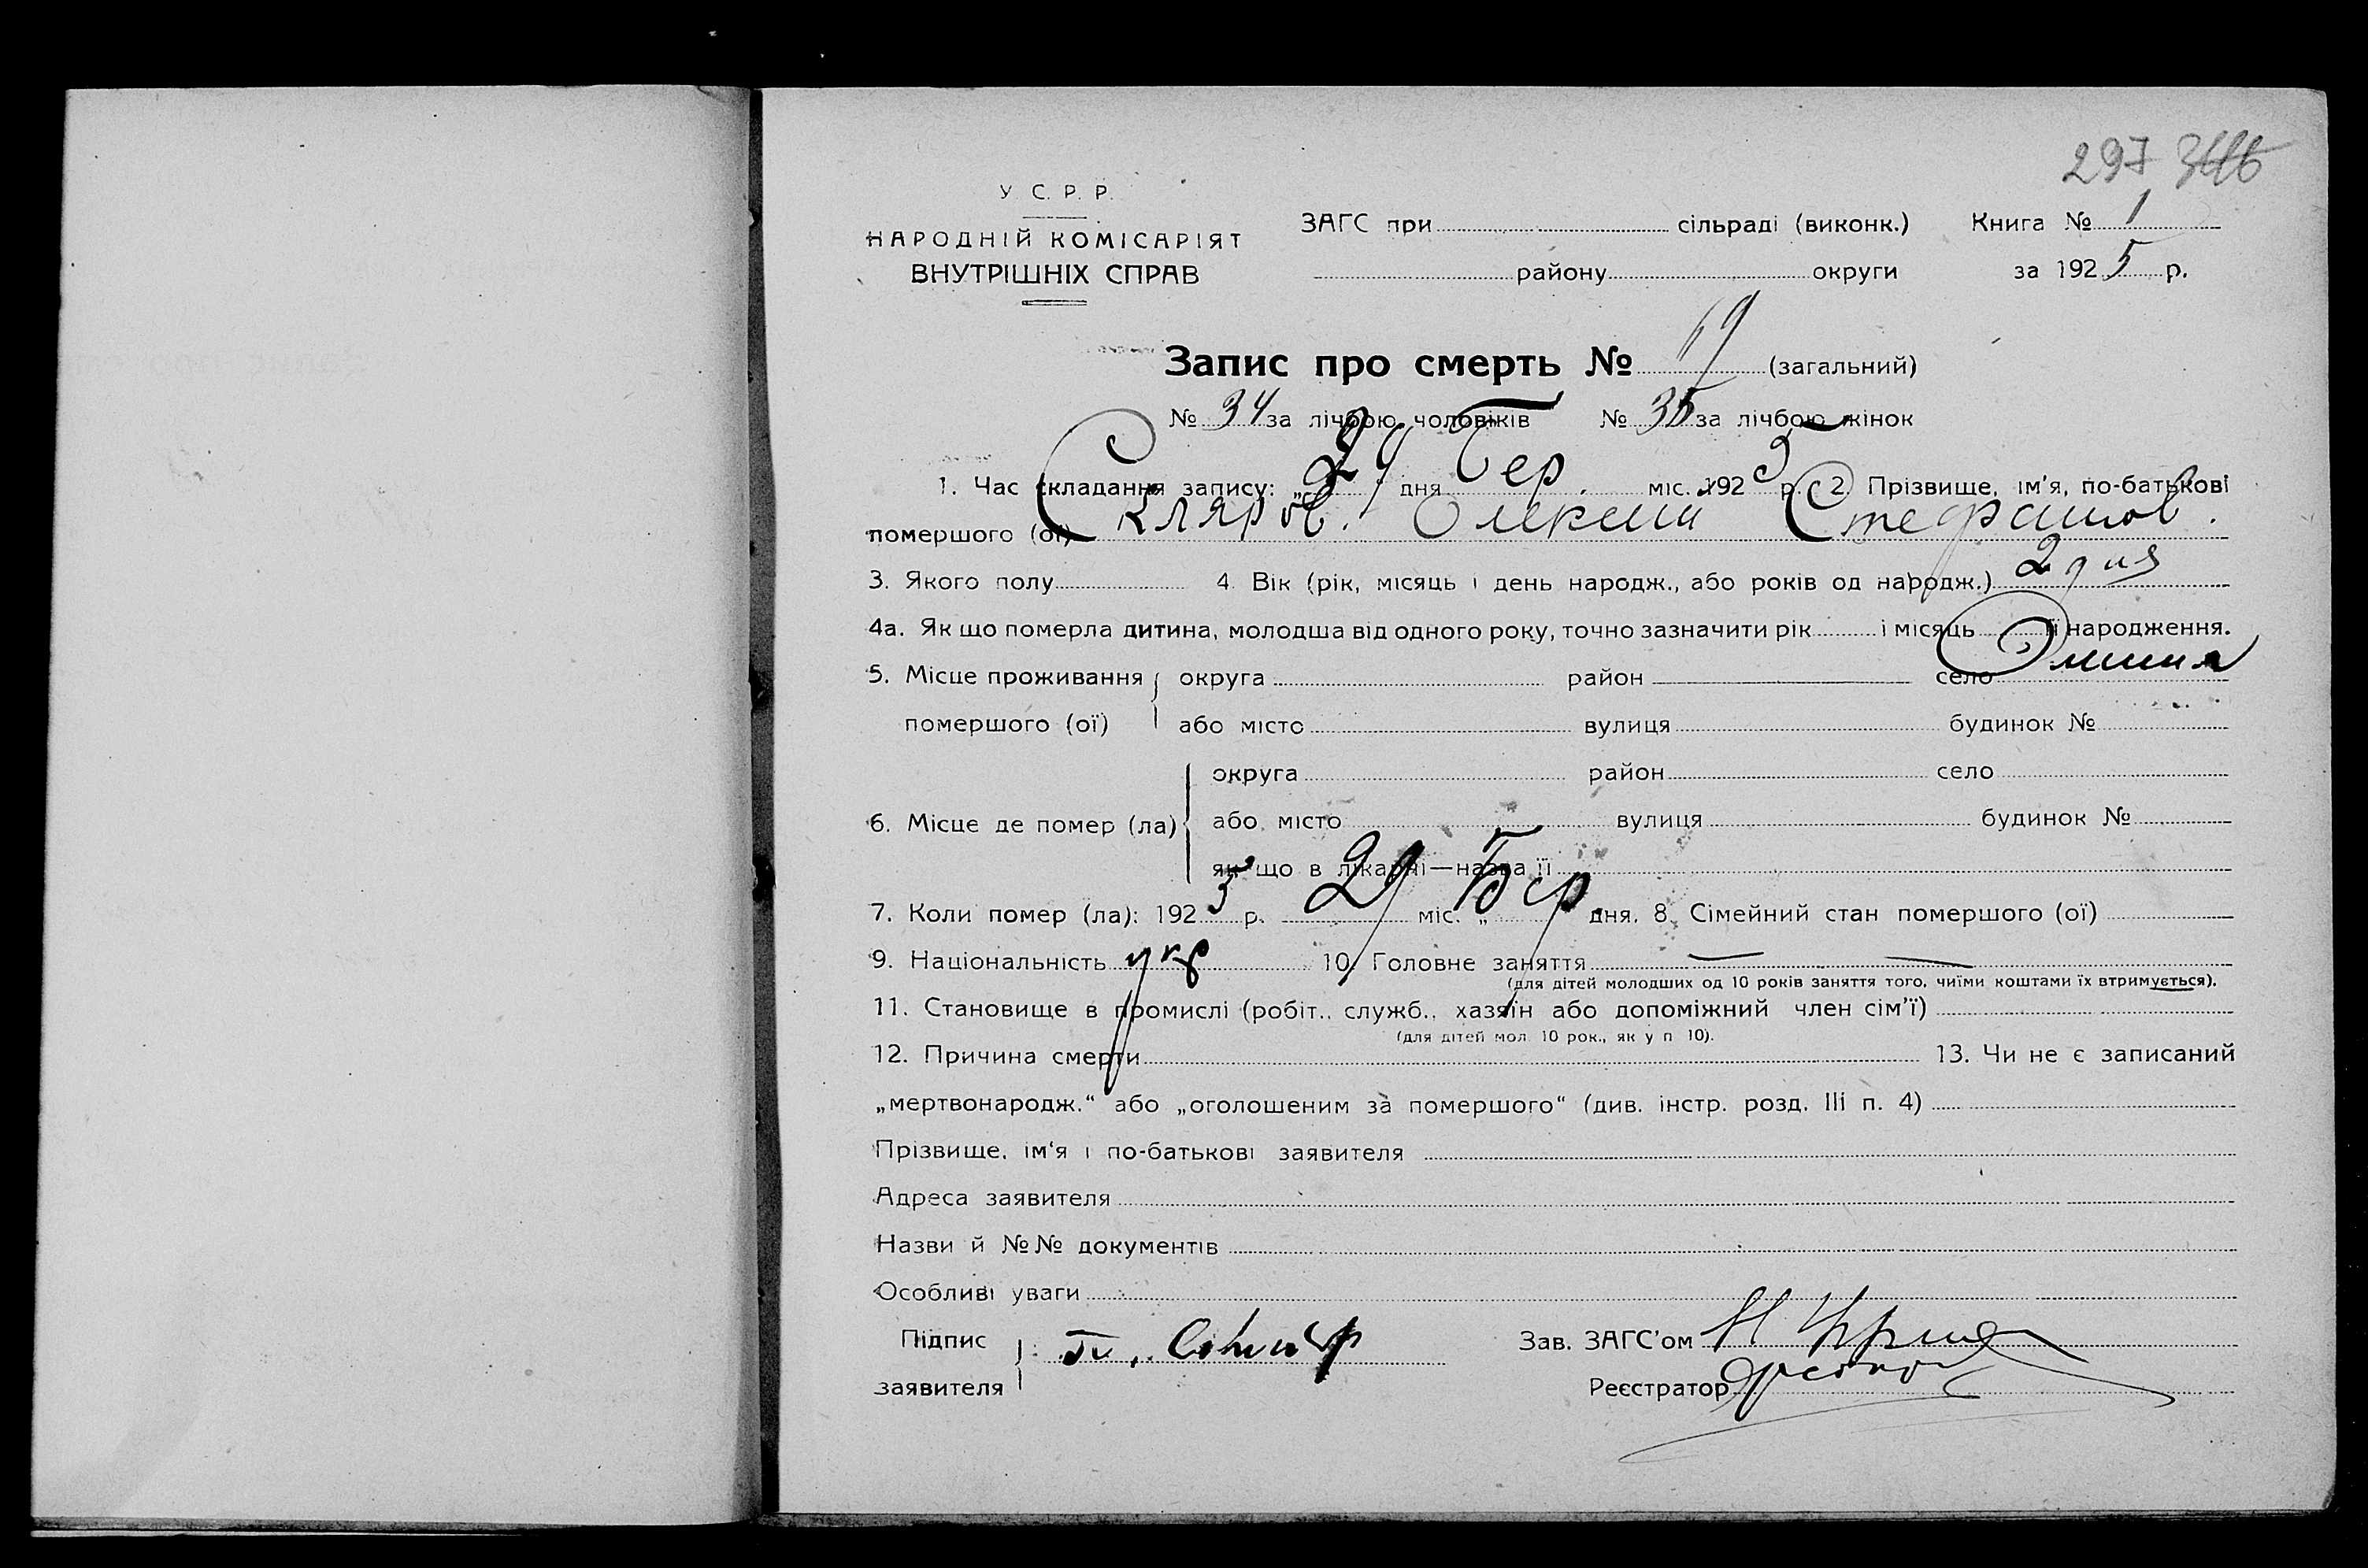 297 346
У. С. Р. Р.
НАРОДНІЙ КОМІСАРІЯТ
ВНУТРІШНІХ СПРАВ
ЗАГС при сільраді (виконк.) Книга № 1
району округи за 1925 р.
Запис про смерть № 69 (загальний)
№ 34 за лічбою чоловіків № 35 за лічбою жінок
1. Час складання запису: „29“ дня Бер. міс. 1925 р. 2. Прізвище, ім'я, по-батькові
помершого (ої) Скляров. Олексій Стефанов.
3. Якого полу 4. Вік (рік, місяць і день народж., або років од народж.) 2 дня
4а. Як що померла дитина, молодша від одного року, точно зазначити рік і місяць її народження.
5. Місце проживання округа район село
помершого (ої) або місто вулиця будинок №
округа район село
6. Місце де помер (ла) або місто вулиця будинок №
як що в лікарні—назва її
7. Коли помер (ла): 1925 р. 29 міс. „ Бер. дня. 8. Сімейний стан помершого (ої)
9. Національність укр 10. Головне заняття — —
(для дітей молодших од 10 років заняття того, чиїми коштами їх втримується).
11. Становище в промислі (робіт., служб., хазяїн або допоміжний член сім'ї)
(для дітей мол. 10 рок., як у п. 10).
12. Причина смерти 13. Чи не є записаний
„мертвонародж.“ або „оголошеним за помершого“ (див. інстр. розд. III п. 4)
Прізвище, ім'я і по-батькові заявителя
Адреса заявителя
Назви й №№ документів
Особливі уваги
Підпис
заявителя
Зав. ЗАГС'ом
Реєстратор